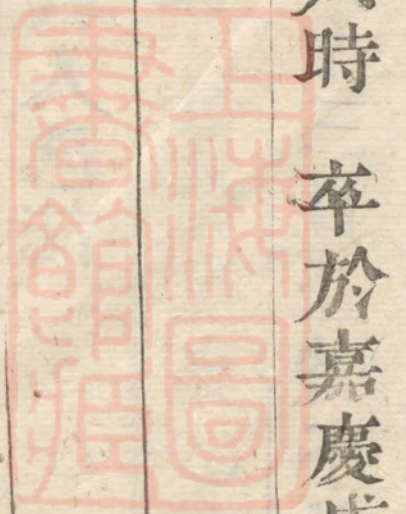 時 卒於嘉慶
上海圖
書館藏